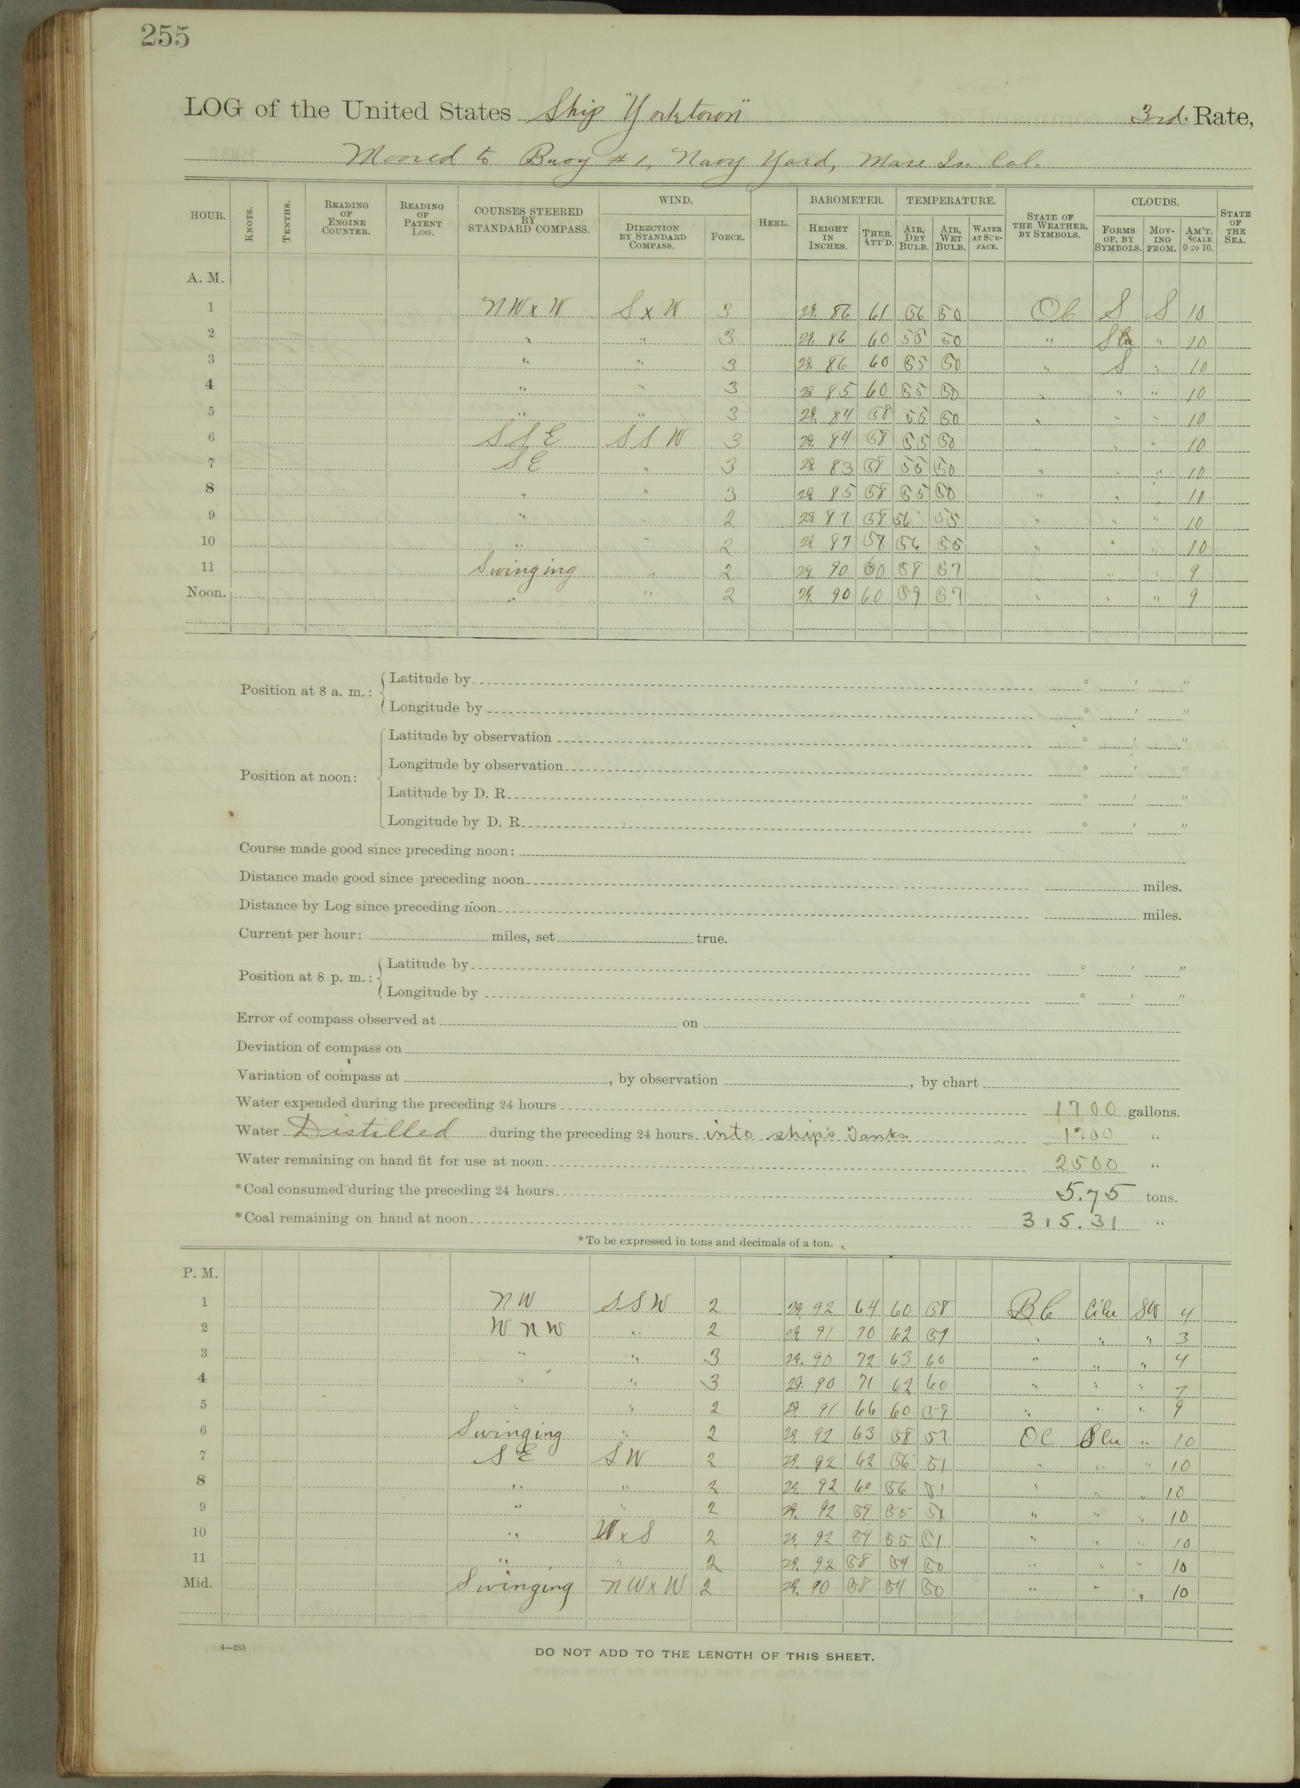 255
LOG of the United States Ship "Yorktown" 3rd. Rate,
Moored to Buoy # 1, Navy Yard, Mare Is. Cal.
HOUR. KNOTS. TENTHS. READING OF ENGINE COUNTER. READING OF PATENT LOG. COURSES STEERED BY STANDARD COMPASS. WIND. DIRECTION BY STANDARD COMPASS. FORCE. HEEL. BAROMETER. HEIGHT IN INCHES. THER. ATT'D. TEMPERATURE. AIR, DRY BULB. AIR, WET BULB. WATER AT SURFACE. STATE OF THE WEATHER, BY SYMBOLS. CLOUDS. FORMS OF, BY SYMBOLS. MOVING FROM. AM'T. SCALE 0 TO 10. STATE OF THE SEA.
A. M.
1 NW x W S x W 3 29. 86 61 56 50 Oc S S 10
2 " " 3 29. 86 60 55 50 " " 10
3 " " 3 29. 86 60 55 50 " S " 10
4 " " 3 29 85 60 55 50 " " " 10
5 " " 3 29. 84 58 55 50 " " " 10
6 S S E S S W 3 29. 84 58 55 50 " " " 10
7 S E " 3 29 83 58 55 50 " " " 10
8 " " 3 29 85 58 55 50 " " " 10
9 " " 2 29 87 58 56 55 " " " 10
10 " " 2 29 87 58 56 55 " " " 10
11 Swinging " 2 29 90 60 58 57 " " " 9
Noon. " " 2 29. 90 60 59 57 " " " 9
Position at 8 a. m.: Latitude by ° ' "
Longitude by ° ' "
Position at noon: Latitude by observation ° ' "
Longitude by observation ° ' "
Latitude by D. R. ° ' "
Longitude by D. R. ° ' "
Course made good since preceding noon:
Distance made good since preceding noon miles.
Distance by Log since preceding noon miles.
Current per hour: miles, set true.
Position at 8 p. m.: Latitude by ° ' "
Longitude by ° ' "
Error of compass observed at on
Deviation of compass on
Variation of compass at , by observation , by chart
Water expended during the preceding 24 hours 1700 gallons.
Water Distilled during the preceding 24 hours into ship's Tanks 1700 "
Water remaining on hand fit for use at noon 2500 "
*Coal consumed during the preceding 24 hours 5.75 tons.
*Coal remaining on hand at noon 315.31 "
*To be expressed in tons and decimals of a ton.
P. M.
1 NW SSW 2 29. 92 64 60 58 BC Cicu SW 4
2 WNW " 2 29 91 70 62 59 " " " 3
3 " " 3 29. 90 72 63 60 " " " 4
4 " " 3 29. 90 71 62 60 " " " 7
5 " " 2 29 91 66 60 59 " " " 9
6 Swinging " 2 29. 92 63 58 57 OC Scu " 10
7 S E S W 2 29. 92 62 56 51 " " " 10
8 " " 2 29. 92 60 56 51 " " " 10
9 " " 2 29. 92 59 55 51 " " " 10
10 " W x S 2 29. 92 59 55 51 " " " 10
11 " " 2 29. 92 58 54 50 " " " 10
Mid. Swinging NW x W 2 29. 90 58 54 50 " " " 10
4—265
DO NOT ADD TO THE LENGTH OF THIS SHEET.